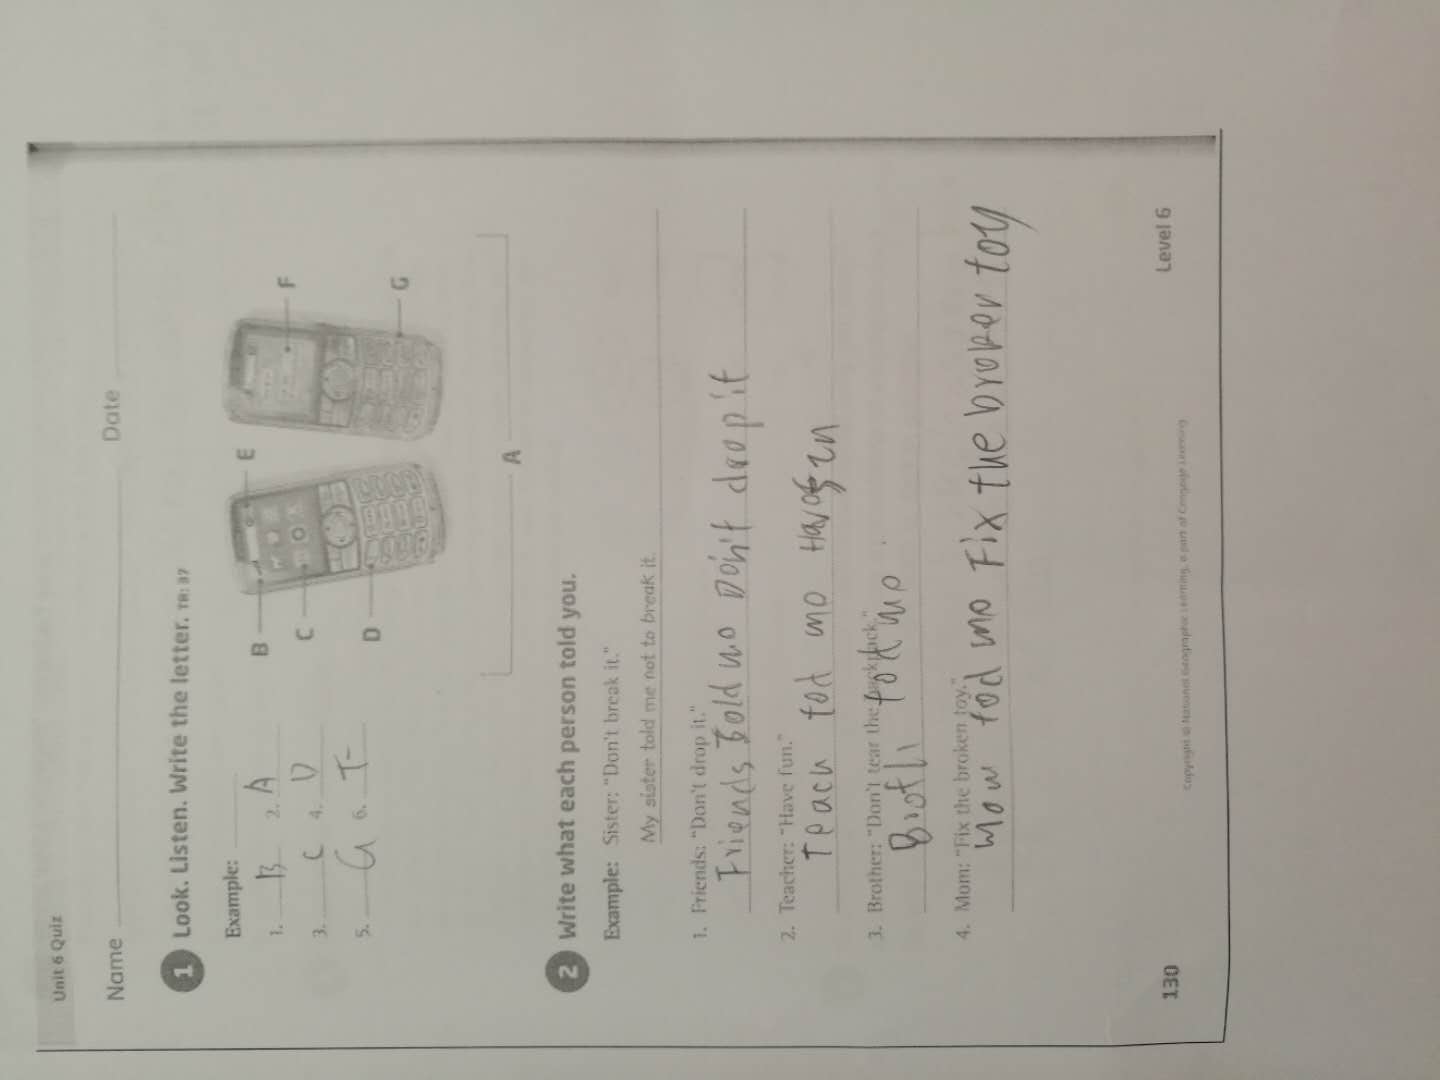 Unit 6 Quiz
Name Date
1 Look. Listen. Write the letter. TR: 37
Example:
1. B 2. A
3. C 4. D
5. G 6.
B E F
C
D G
A
2 Write what each person told you.
Example: Sister: "Don't break it."
My sister told me not to break it.
1. Friends: "Don't drop it."
Friends told mo Don't drop it
2. Teacher: "Have fun."
Teach tod mo
3. Brother: "Don't tear the backpack."
tod mo
4. Mom: "Fix the broken toy."
Mom tod mo Fix the broker toy
130 Copyright © National Geographic Learning, a part of Cengage Learning Level 6